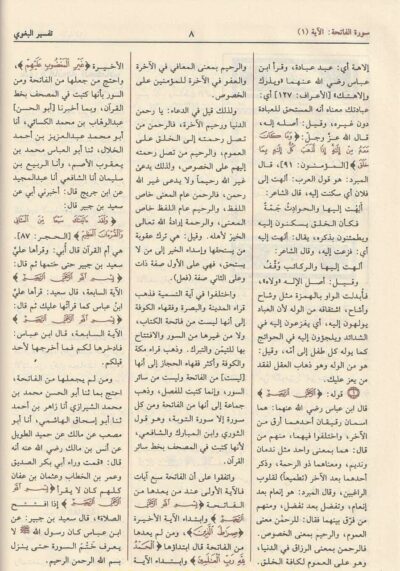 سورة الفاتحة: الآية (١)
٨
تفسير البغوي
إلاهة أي: عبد عبادة، وقرأ ابن
عباس رضي الله عنهما «ويذرك
وإلاهتك» [الأعراف: ١٢٧] أي:
عبادتك معناه أنه المستحق للعبادة
دون غيره، وقيل: أصله إله،
قال الله عزّ وجلّ: ﴿وَمَا كَانَ
مَعَهُ مِنْ إِلَهٍ إِذًا لَذَهَبَ كُلُّ إِلَهٍ بِمَا
خَلَقَ﴾ [المؤمنون: ٩١]، قال
المبرد: هو قول العرب: ألهت إلى
فلان أي سكنت إليه، قال الشاعر:
ألهت إليها والحوادث جمة
فكأن الخلق يسكنون إليه
ويطمئنون بذكره، يقال: ألهت إليه
أي: فزعت إليه، وقال الشاعر:
ألهت إليها والركائب وُقَّف
وقيل: أصل الإله «ولاه»،
فأبدلت الواو بالهمزة مثل وشاح
وأشاح، اشتقاقه من الوله لأن العباد
يولهون إليه، أي يفزعون إليه في
الشدائد ويلجؤون إليه في الحوائج
كما يوله كل طفل إلى أمه، وقيل:
هو من الوله وهو ذهاب العقل لفقد
من يعز عليك.
قوله: ﴿الرَّحْمَنِ الرَّحِيمِ﴾
قال ابن عباس رضي الله عنهما: هما
اسمان رقيقان أحدهما أرق من
الآخر، واختلفوا فيهما، منهم من
قال: هما بمعنى واحد مثل ندمان
ونديم، ومعناهما ذو الرحمة، وذكر
أحدهما بعد الآخر (تطميعاً) لقلوب
الراغبين، وقال المبرد: هو إنعام بعد
إنعام، وتفضل بعد تفضل، ومنهم
من فرّق بينهما فقال: للرحمن معنى
العموم، والرحيم بمعنى الخصوص.
فالرحمن بمعنى الرزاق في الدنيا،
وهو على العموم لكافة الخلق.
والرحيم بمعنى المعافي في الآخرة
والعفو في الآخرة للمؤمنين على
الخصوص.
ولذلك قيل في الدعاء: يا رحمن
الدنيا ورحيم الآخرة، فالرحمن من
تصل رحمته إلى الخلق على
العموم، والرحيم من تصل رحمته
إليهم على الخصوص، ولذلك يدعى
غير الله رحيماً ولا يدعى غير الله
رحمن، فالرحمن عام المعنى خاص
اللفظ، والرحيم عام اللفظ خاص
المعنى، والرحمة إرادة الله تعالى
الخير لأهله. وقيل: هي ترك عقوبة
من يستحقها وإسداء الخير إلى من لا
يستحق، فهي على الأول صفة ذات
وعلى الثاني صفة (فعل).
واختلفوا في آية التسمية فذهب
قراء المدينة والبصرة وفقهاء الكوفة
إلى أنها ليست من فاتحة الكتاب،
ولا من غيرها من السور والافتتاح
بها للتيمّن والتبرك. وذهب قراء مكة
والكوفة وأكثر فقهاء الحجاز إلى أنها
[ليست] من الفاتحة وليست من سائر
السور، وإنما كتبت للفصل، وذهب
جماعة إلى أنها من الفاتحة ومن كل
سورة إلا سورة التوبة، وهو قول
الثوري وابن المبارك والشافعي،
لأنها كتبت في المصحف بخط سائر
القرآن.
واتفقوا على أن الفاتحة سبع آيات
فالآية الأولى عند من يعدها من
الفاتحة ﴿بِسْمِ اللَّهِ
الرَّحْمَنِ الرَّحِيمِ﴾ وابتداء الآية الأخيرة
﴿صِرَاطَ الَّذِينَ﴾، ومن لم يعدها
من الفاتحة قال ابتداؤها ﴿الْحَمْدُ
لِلَّهِ رَبِّ الْعَالَمِينَ﴾ وابتداء الآية
الأخيرة ﴿غَيْرِ الْمَغْضُوبِ عَلَيْهِمْ﴾،
واحتج من جعلها من الفاتحة ومن
السور بأنها كتبت في المصحف بخط
القرآن، وبما أخبرنا [أبو الحسن]
عبدالوهاب بن محمد الكسائي، أنا
أبو محمد عبدالعزيز بن أحمد
الخلال، ثنا أبو العباس محمد بن
يعقوب الأصم، وأنا الربيع بن
سليمان أنا الشافعي أنا عبدالمجيد
عن ابن جريج قال: أخبرني أبي عن
سعيد بن جبير قال:
﴿وَلَقَدْ آتَيْنَاكَ سَبْعًا مِنَ الْمَثَانِي
وَالْقُرْآنَ الْعَظِيمَ﴾ [الحجر: ٨٧].
هي أم القرآن قال أبي: وقرأها عليّ
سعيد بن جبير حتى ختمها ثم قال:
﴿بِسْمِ اللَّهِ الرَّحْمَنِ الرَّحِيمِ﴾
الآية السابعة، قال سعيد: قرأها عليّ
ابن عباس كما قرأتها عليك ثم قال:
﴿بِسْمِ اللَّهِ الرَّحْمَنِ الرَّحِيمِ﴾
الآية السابعة، قال ابن عباس:
فادخرها لكم فما أخرجها لأحد
قبلكم.
ومن لم يجعلها من الفاتحة،
احتج بما ثنا أبو الحسن محمد بن
محمد الشيرازي أنا زاهر بن أحمد
ثنا أبو إسحاق الهاشمي، أنا أبو
مصعب عن مالك عن حميد الطويل
عن أنس بن مالك رضي الله عنه أنه
قال: قمت وراء أبي بكر الصديق
وعمر بن الخطاب وعثمان بن عفان
كلهم كان لا يقرأ ﴿بِسْمِ اللَّهِ
الرَّحْمَنِ الرَّحِيمِ﴾ إذا افتتح
الصلاة، قال سعيد بن جبير: عن
ابن عباس كان رسول الله ﷺ لا
يعرف ختم السورة حتى ينزل
بسم الله الرحمن الرحيم.